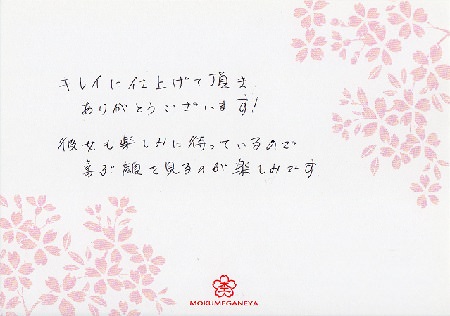 キレイに仕上げて頂き
ありがとうございます!
彼女も楽しみに待っているので
喜ぶ顔を見るのが楽しみです
MOKUMEGANEYA